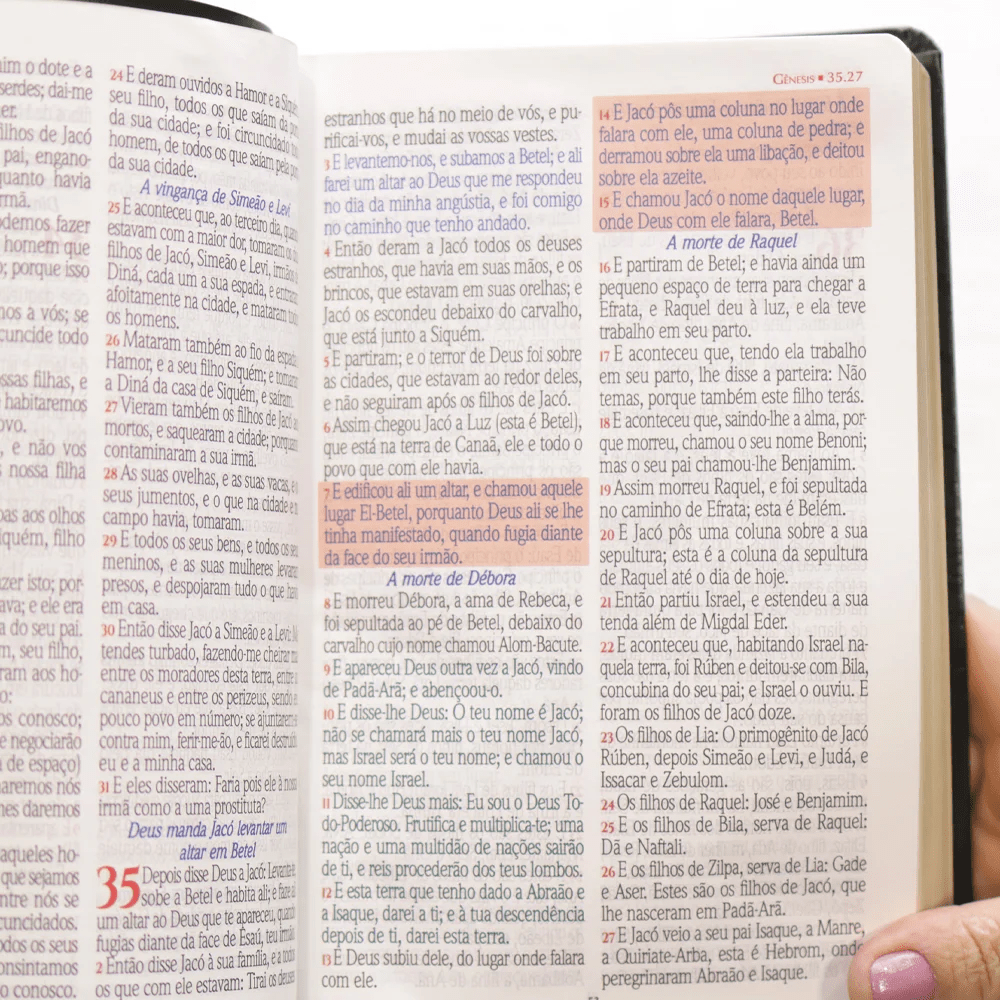 im o dote e a
serdes; dai-me
er.
ilhos de Jacó
pai, engano-
quanto havia
rmã.
odemos fazer
homem que
o; porque isso
nos a vós; se
cuncide todo
ssas filhas, e
habitaremos
ovo.
, e não vos
nossa filha
oas aos olhos
iquém, filho
zer isto; por-
ava; e ele era
a do seu pai.
m, seu filho,
ram aos ho-
o:
os conosco;
e negociarão
a de espaço)
naremos nós
nes daremos
aqueles ho-
que sejamos
ntre nós se
cuncidados.
odos os seus
onsintamos
o conosco.
24 E deram ouvidos a Hamor e a
seu filho, todos os que saíam da
da sua cidade; e foi circuncidado
homem, de todos os que saíam pela
da sua cidade.
A vingança de Simeão e Levi
25 E aconteceu que, ao terceiro dia,
estavam com a maior dor, tomaram os
filhos de Jacó, Simeão e Levi, irmãos
Diná, cada um a sua espada, e entraram
afoitamente na cidade, e mataram
os homens.
26 Mataram também ao fio da espada
Hamor, e a seu filho Siquém; e tomaram
a Diná da casa de Siquém, e saíram.
27 Vieram também os filhos de Jacó aos
mortos, e saquearam a cidade; porquanto
contaminaram a sua irmã.
28 As suas ovelhas, e as suas vacas, e
seus jumentos, e o que na cidade e
campo havia, tomaram.
29 E todos os seus bens, e todos os seus
meninos, e as suas mulheres levaram
presos, e despojaram tudo o que
em casa.
30 Então disse Jacó a Simeão e a Levi:
tendes turbado, fazendo-me cheirar
entre os moradores desta terra, entre
cananeus e entre os perizeus, sendo
pouco povo em número; se ajuntarem
contra mim, ferir-me-ão, e ficarei
eu e a minha casa.
31 E eles disseram: Faria pois ele à nossa
irmã como a uma prostituta?
Deus manda Jacó levantar um
altar em Betel
35 Depois disse Deus a Jacó: Levanta-te
sobe a Betel e habita ali; e faze ali
um altar ao Deus que te apareceu, quando
fugias diante da face de Esaú, teu irmão.
2 Então disse Jacó à sua família, e a todos
os que com ele estavam: Tirai os deuses
GÊNESIS ▪ 35.27
estranhos que há no meio de vós, e pu-
rificai-vos, e mudai as vossas vestes.
3 E levantemo-nos, e subamos a Betel; e ali
farei um altar ao Deus que me respondeu
no dia da minha angústia, e foi comigo
no caminho que tenho andado.
4 Então deram a Jacó todos os deuses
estranhos, que havia em suas mãos, e os
brincos, que estavam em suas orelhas; e
Jacó os escondeu debaixo do carvalho,
que está junto a Siquém.
5 E partiram; e o terror de Deus foi sobre
as cidades, que estavam ao redor deles,
e não seguiram após os filhos de Jacó.
6 Assim chegou Jacó a Luz (esta é Betel),
que está na terra de Canaã, ele e todo o
povo que com ele havia.
7 E edificou ali um altar, e chamou aquele
lugar El-Betel, porquanto Deus ali se lhe
tinha manifestado, quando fugia diante
da face do seu irmão.
A morte de Débora
8 E morreu Débora, a ama de Rebeca, e
foi sepultada ao pé de Betel, debaixo do
carvalho cujo nome chamou Alom-Bacute.
9 E apareceu Deus outra vez a Jacó, vindo
de Padã-Arã; e abençoou-o.
10 E disse-lhe Deus: O teu nome é Jacó;
não se chamará mais o teu nome Jacó,
mas Israel será o teu nome; e chamou o
seu nome Israel.
11 Disse-lhe Deus mais: Eu sou o Deus To-
do-Poderoso. Frutifica e multiplica-te; uma
nação e uma multidão de nações sairão
de ti, e reis procederão dos teus lombos.
12 E esta terra que tenho dado a Abraão e
a Isaque, darei a ti; e à tua descendência
depois de ti, darei esta terra.
13 E Deus subiu dele, do lugar onde falara
com ele.
14 E Jacó pôs uma coluna no lugar onde
falara com ele, uma coluna de pedra; e
derramou sobre ela uma libação, e deitou
sobre ela azeite.
15 E chamou Jacó o nome daquele lugar,
onde Deus com ele falara, Betel.
A morte de Raquel
16 E partiram de Betel; e havia ainda um
pequeno espaço de terra para chegar a
Efrata, e Raquel deu à luz, e ela teve
trabalho em seu parto.
17 E aconteceu que, tendo ela trabalho
em seu parto, lhe disse a parteira: Não
temas, porque também este filho terás.
18 E aconteceu que, saindo-lhe a alma, por-
que morreu, chamou o seu nome Benoni;
mas o seu pai chamou-lhe Benjamim.
19 Assim morreu Raquel, e foi sepultada
no caminho de Efrata; esta é Belém.
20 E Jacó pôs uma coluna sobre a sua
sepultura; esta é a coluna da sepultura
de Raquel até o dia de hoje.
21 Então partiu Israel, e estendeu a sua
tenda além de Migdal Eder.
22 E aconteceu que, habitando Israel na-
quela terra, foi Rúben e deitou-se com Bila,
concubina do seu pai; e Israel o ouviu. E
foram os filhos de Jacó doze.
23 Os filhos de Lia: O primogênito de Jacó
Rúben, depois Simeão e Levi, e Judá, e
Issacar e Zebulom.
24 Os filhos de Raquel: José e Benjamim.
25 E os filhos de Bila, serva de Raquel:
Dã e Naftali.
26 E os filhos de Zilpa, serva de Lia: Gade
e Aser. Estes são os filhos de Jacó, que
lhe nasceram em Padã-Arã.
27 E Jacó veio a seu pai Isaque, a Manre,
a Quiriate-Arba, esta é Hebrom, onde
peregrinaram Abraão e Isaque.